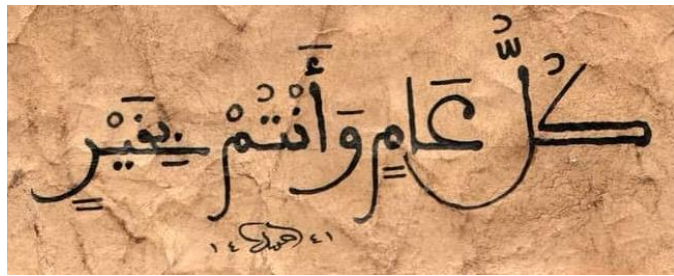 كُلُّ عَامٍ وَأَنْتُمْ بِخَيْرٍ
١٤ ٤١